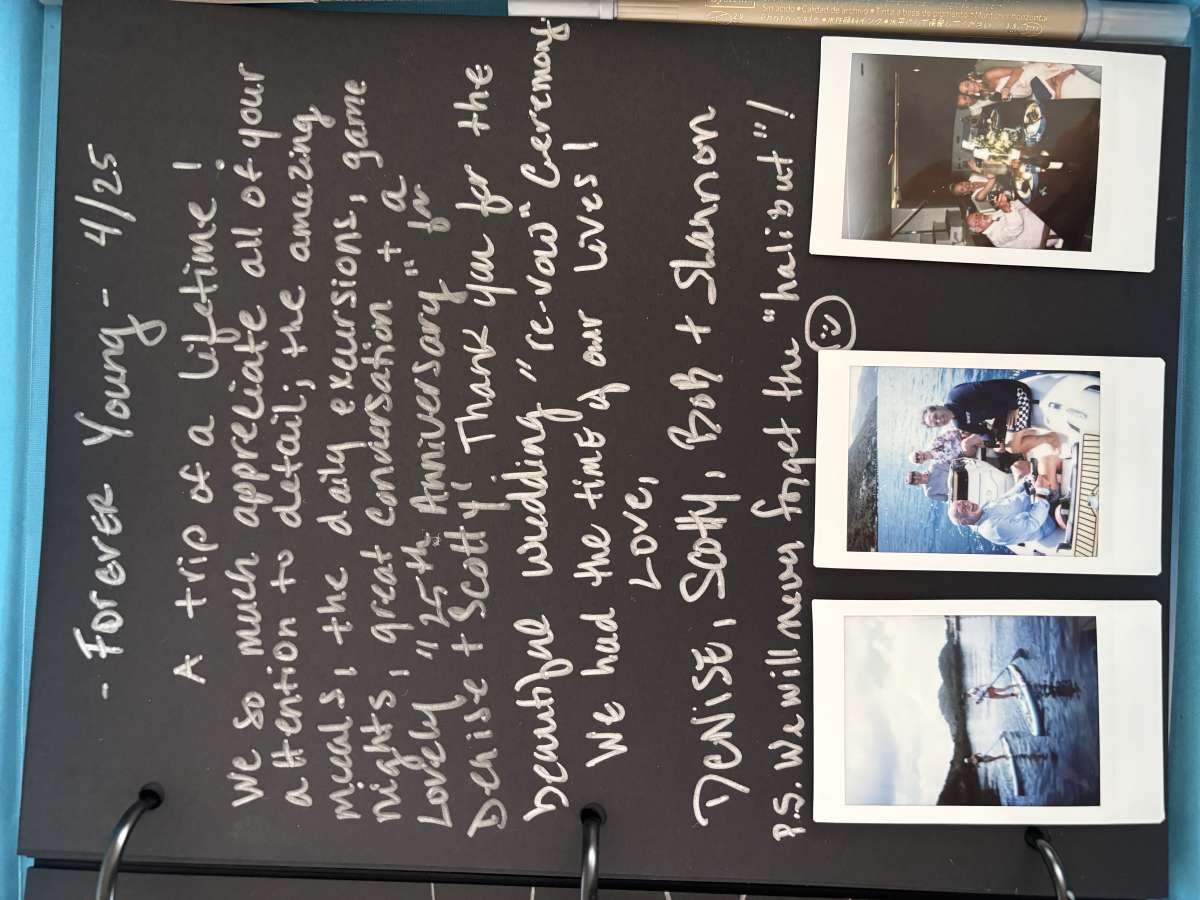 - Forever Young - 4/25
A trip of a lifetime!
We so much appreciate all of your
attention to detail; the amazing
meals, the daily excursions, game
nights, great conversation + a
Lovely "25th Anniversary" for
Denise + Scotty! Thank you for the
Beautiful wedding "re-vow" Ceremony.
We had the time of our lives!
Love,
Denise, Scotty, Bob + Shannon
P.S. We will never forget the "halibut"!
Sin ácido • Calidad de archivo • Tinta a base de pigmentos • Mantener horizontal